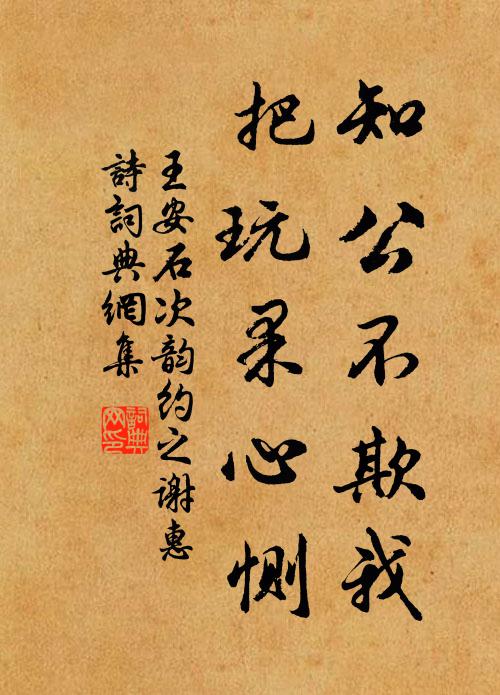 知公不欺我
把玩果心恻
王安石次韵约之谢惠
詩詞典網集
詞典
网印